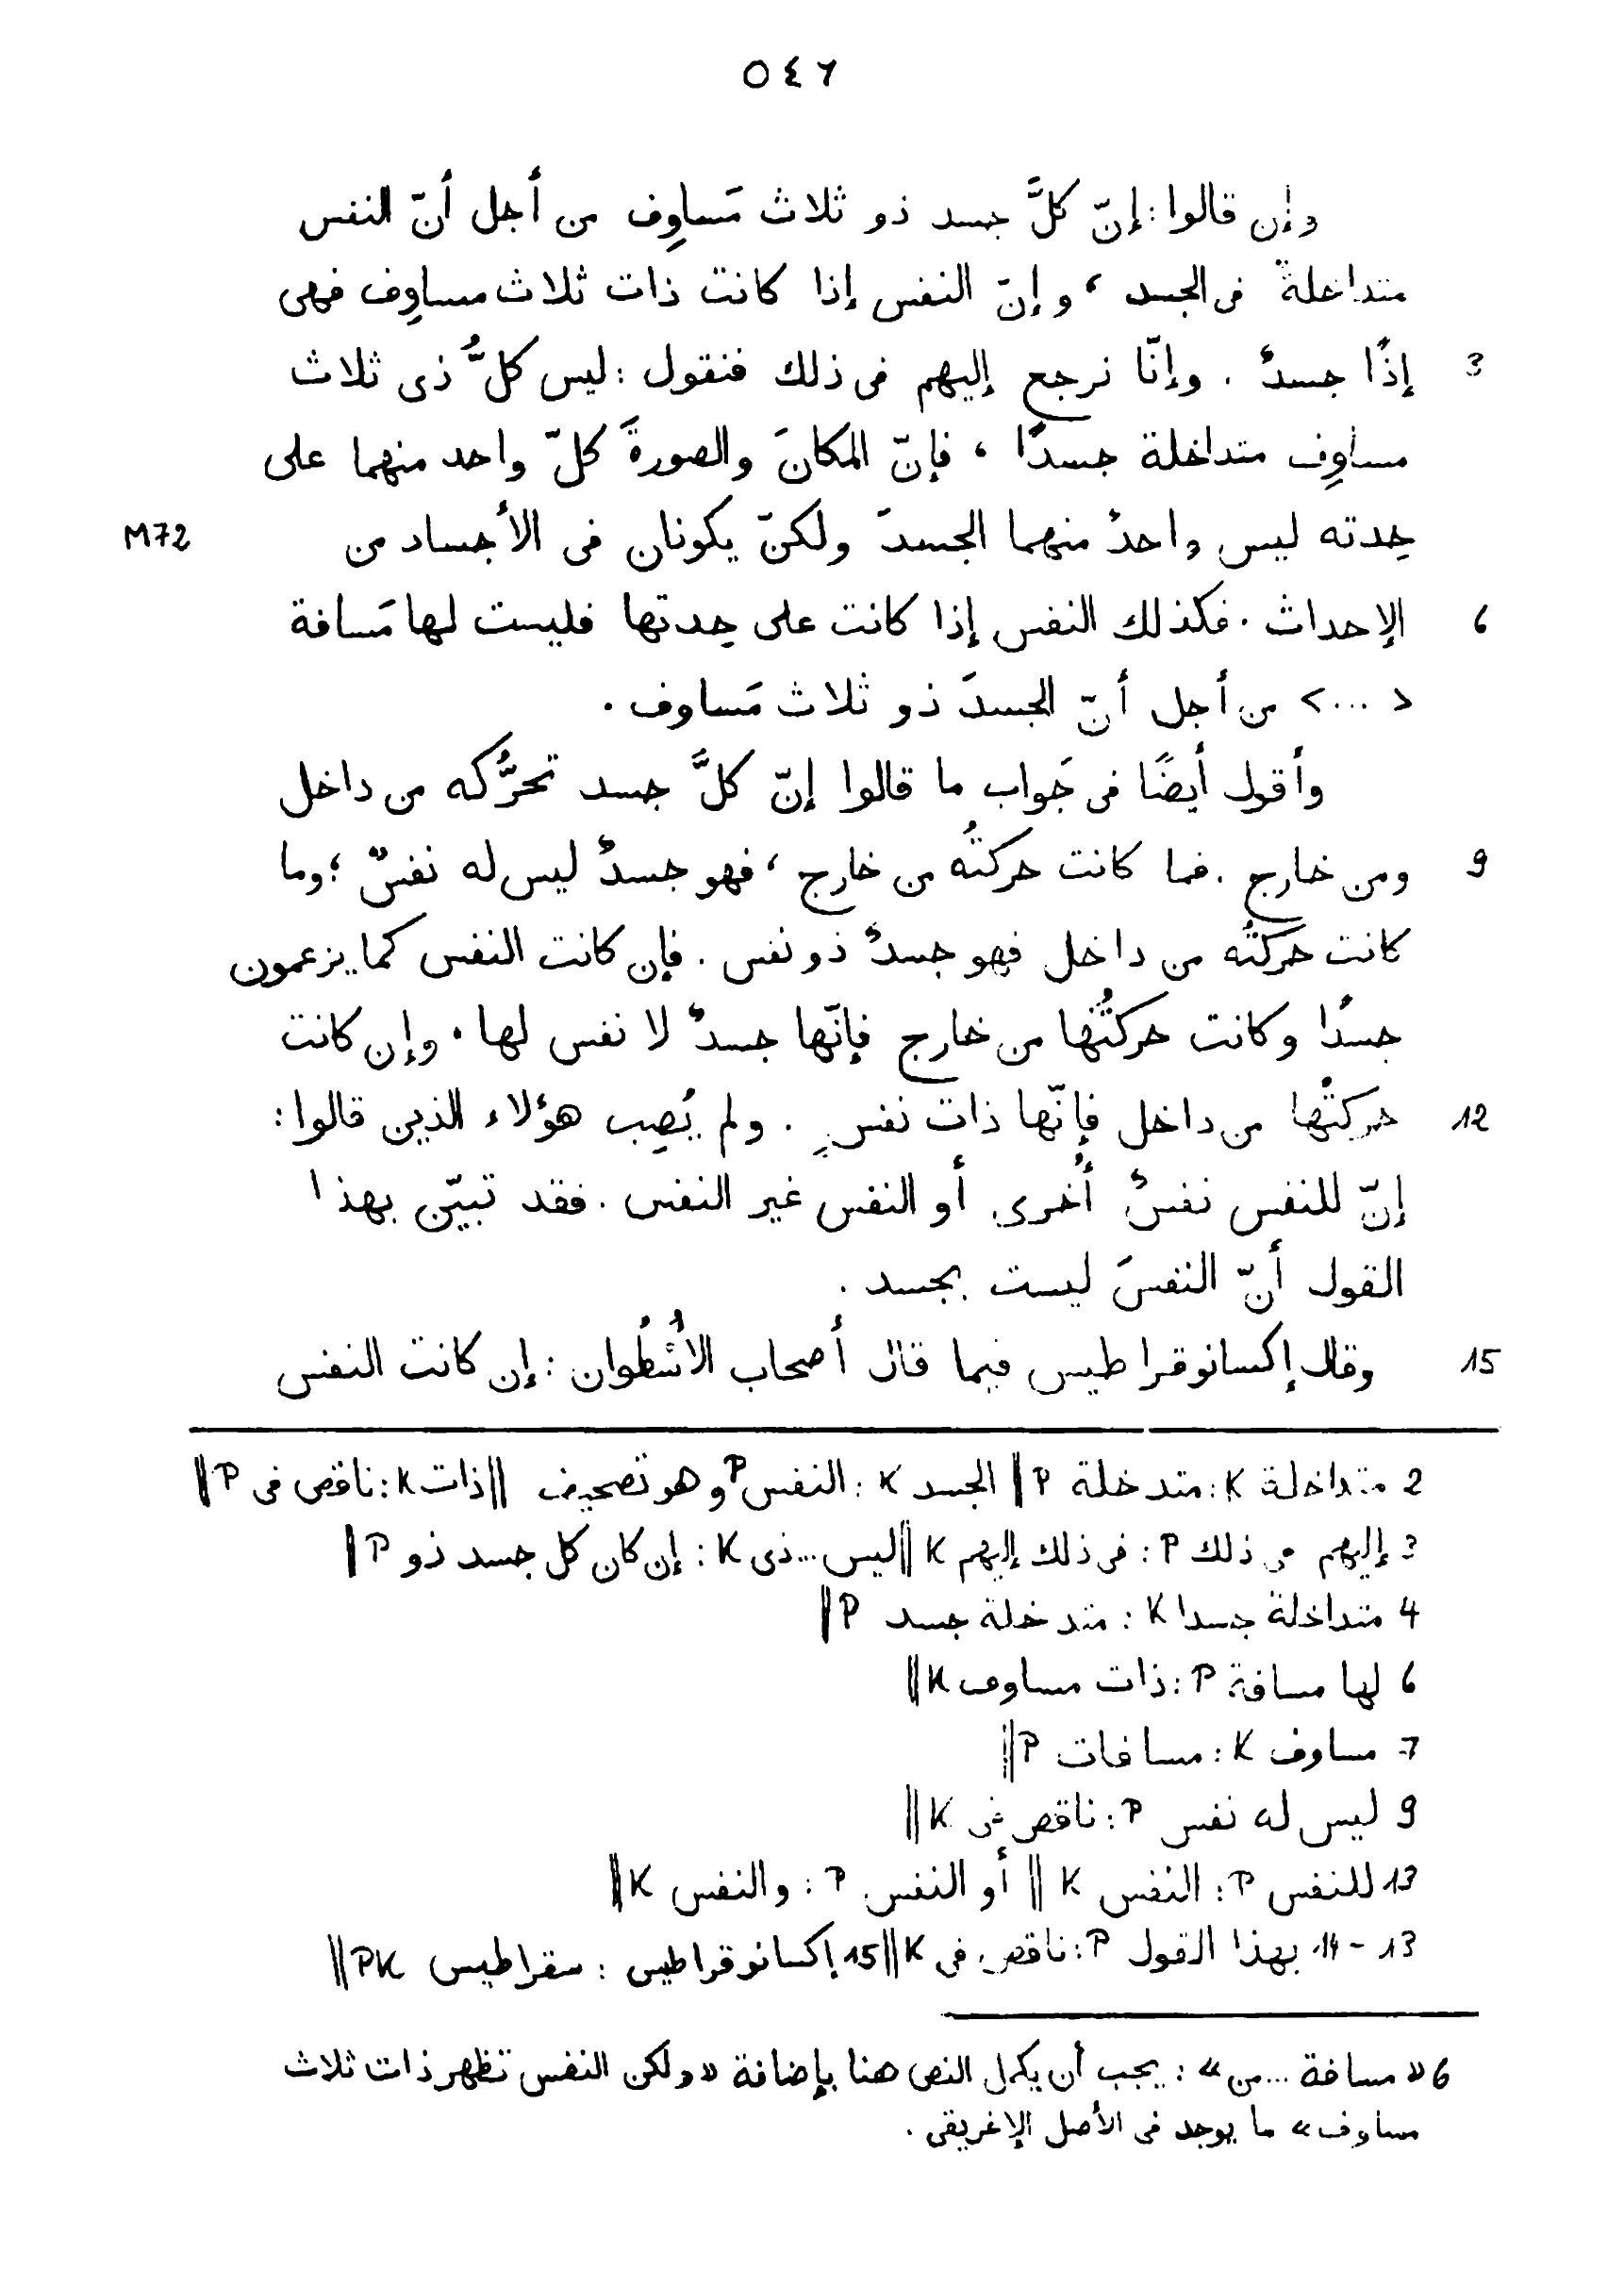 ٥٤٦
وإن قالوا : إنّ كلَّ جسد ذو ثلاث مَساوِف من أجل أنّ النفس
متداخلةٌ فى الجسد ، وإنّ النفس إذا كانت ذات ثلاث مساوِف فهى
3 إذًا جسدٌ . وإنّا نرجع إليهم فى ذلك فنقول : ليس كلُّ ذى ثلاث
مساوِف متداخلة جسدًا ، فإنّ المكانَ والصورةَ كلّ واحد منهما على
حِدته ليس واحدٌ منهما الجسدَ ولكنّ يكونان فى الأجساد من M72
6 الإحداث . فكذلك النفس إذا كانت على حِدتها فليست لها مَسافة
< ... > من أجل أنّ الجسدَ ذو ثلاث مَساوف .
وأقول أيضًا فى جَواب ما قالوا إنّ كلَّ جسد تحرُّكه من داخل
9 ومن خارج . فما كانت حركتُه من خارج ، فهو جسدٌ ليس له نفسٌ ؛ وما
كانت حركتُه من داخل فهو جسدٌ ذو نفس . فإن كانت النفس كما يزعمون
جسدًا وكانت حركتُها من خارج فإنّها جسدٌ لا نفس لها . وإن كانت
12 حركتُها من داخل فإنّها ذات نفسٍ . ولم يُصِب هؤلاء الذين قالوا :
إنّ للنفس نفسٌ أُخرى أو النفس غير النفس . فقد تبيّن بهذا
القول أنّ النفسَ ليست بجسد .
15 وقال إكسانوقراطيس فيما قال أصحاب الأُسْطُوان : إن كانت النفس
2 متداخلة K : متدخلة P || الجسد K : النفس P وهو تصحيف || ذات K : ناقص فى P ||
3 إليهم فى ذلك P : فى ذلك إليهم K || ليس ... ذى K : إن كان كل جسد ذو P ||
4 متداخلة جسدا K : متدخلة جسد P ||
6 لها مسافة P : ذات مساوف K ||
7 مساوف K : مسافات P ||
9 ليس له نفس P : ناقص فى K ||
13 للنفس P : النفس K || أو النفس P : والنفس K ||
13 - 14 بهذا القول P : ناقص فى K || 15 إكسانوقراطيس : سقراطيس PK ||
6 « مسافة ... من » : يجب أن يكمل النص هنا بإضافة « ولكن النفس تظهر ذات ثلاث
مساوف » ما يوجد فى الأصل الإغريقى .